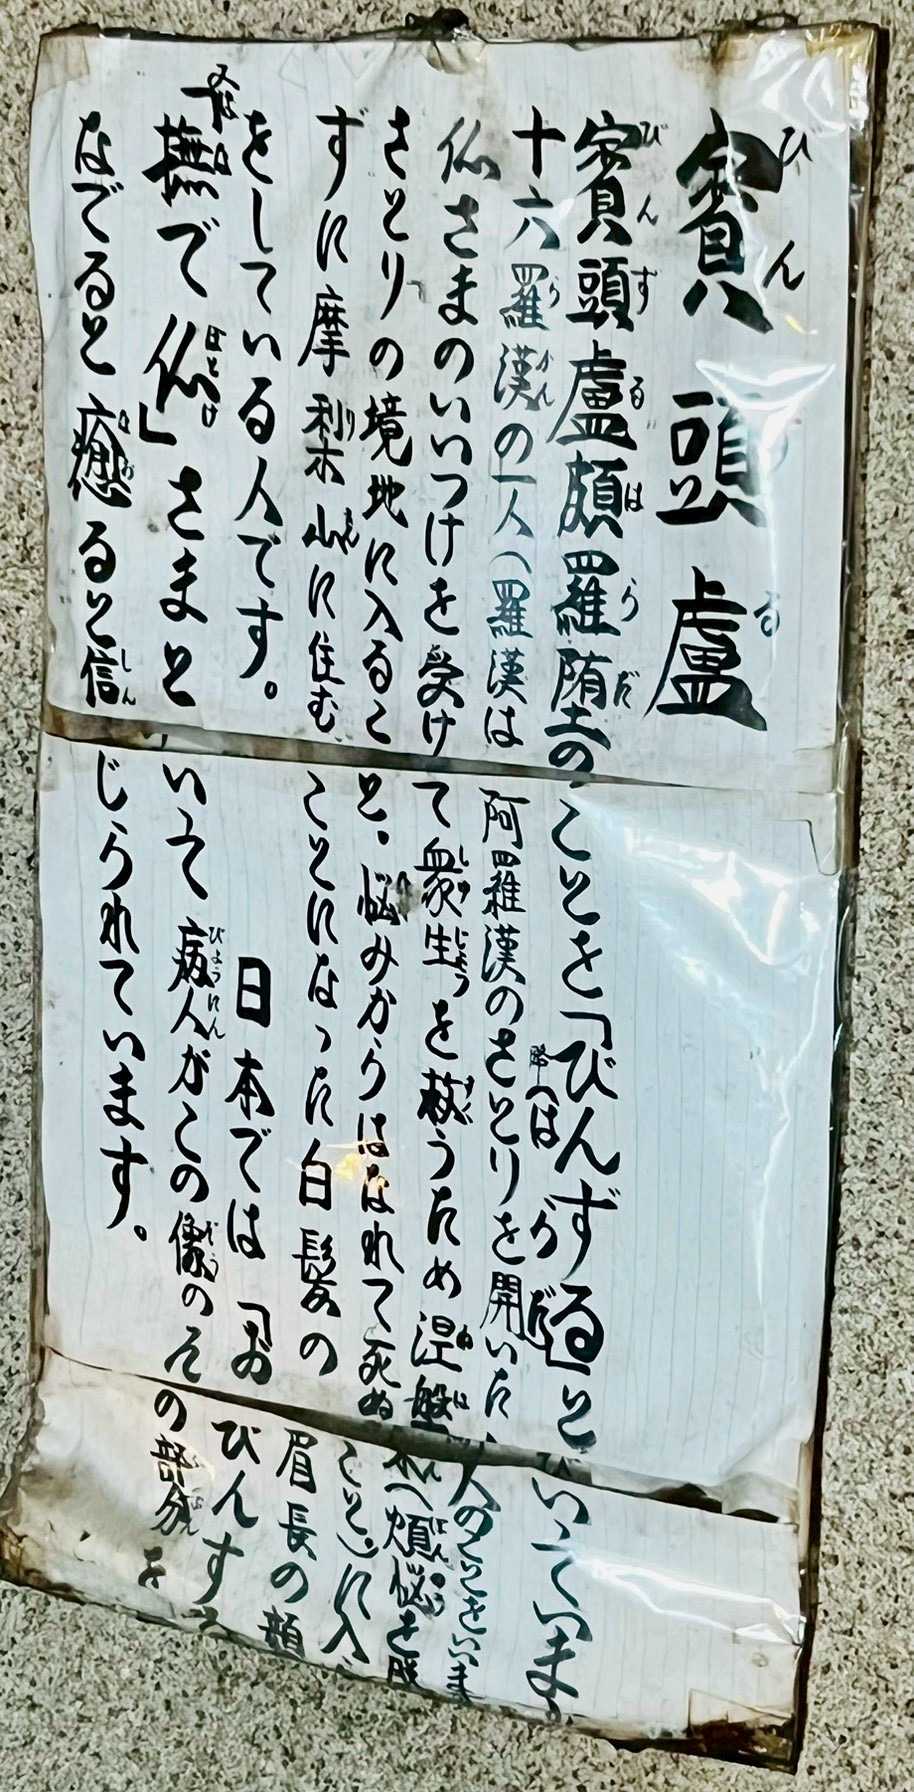 賓頭盧
賓頭盧頗羅堕のことを「びんずる」といっていま
十六羅漢の一人(羅漢は阿羅漢のさとりを開いた人のことをいいま
仏さまのいいつけを受けて衆生を救うため涅槃(煩悩を
さとりの境地に入ること。悩みからはなれて死ぬこと)に入
ずに摩梨山に住むことになった白髪の眉長の顔
をしている人です。日本では「おびんず
撫で仏」さまといって病人がこの像のその部分を
なでると癒ると信じられています。